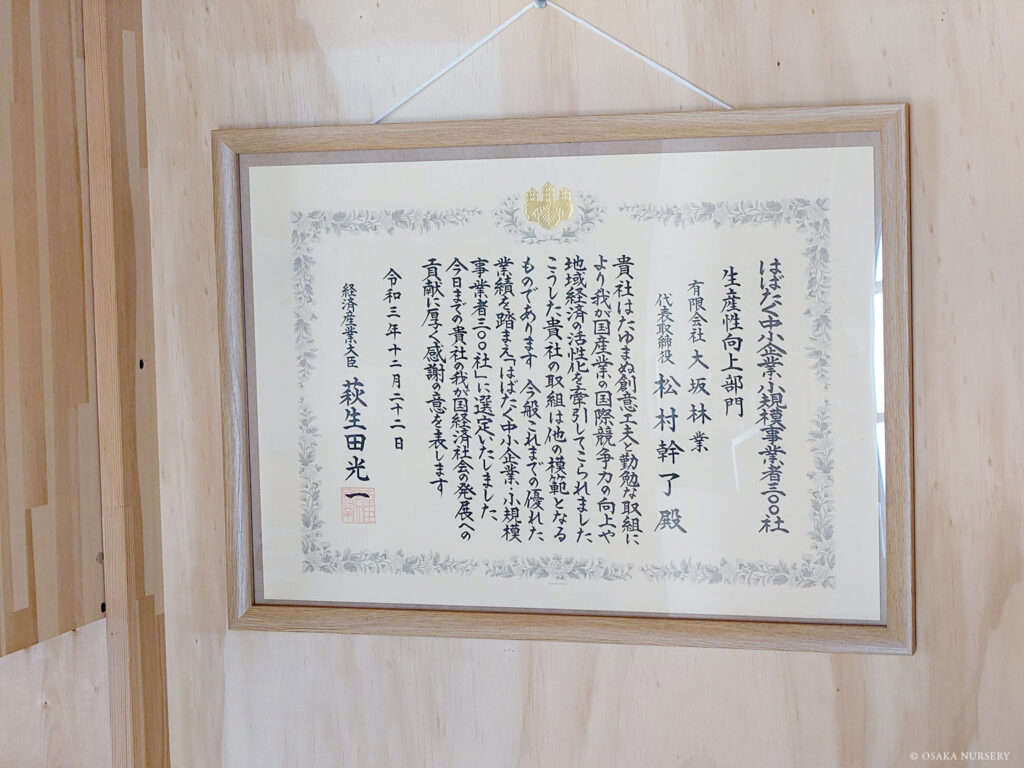 はばたく中小企業・小規模事業者三〇〇社
生産性向上部門
有限会社 大坂林業
代表取締役 松村幹了殿
貴社はたゆまぬ創意工夫や勤勉な取組に
より我が国産業の国際競争力の向上や
地域経済の活性化を牽引してこられました
こうした貴社の取組は他の模範となる
ものであります 今般これまでの優れた
業績を踏まえ「はばたく中小企業・小規模
事業者三〇〇社」に選定いたしました
今日までの貴社の我が国経済社会の発展への
貢献に厚く感謝の意を表します
令和三年十二月二十二日
経済産業大臣 萩生田光一
© OSAKA NURSERY